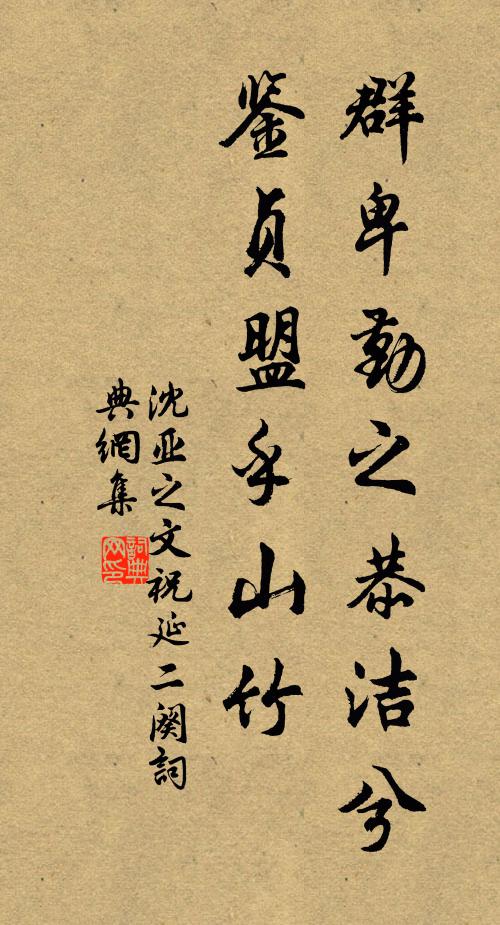 群卑勤之恭洁兮
鉴贞盟乎山竹
沈亚之文祝延二阕詞
典網集
詞典网印